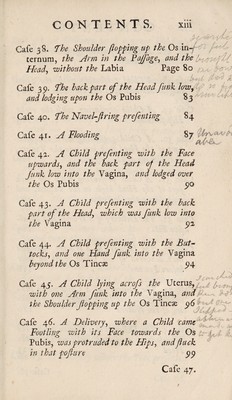 CONTENTS. xiii
Caſe 38. The Shoulder ſtopping up the Os in-
ternum, the Arm in the Paſſage, and the
Head, without the Labia Page 80
Caſe 39. The back part of the Head ſunk low,
and lodging upon the Os Pubis 83
Caſe 40. The Navel-ſtring preſenting 84
Caſe 41. A Flooding 87
Caſe 42. A Child preſenting with the Face
upwards, and the back part of the Head
ſunk low into the Vagina, and lodged over
the Os Pubis 90
Caſe 43. A Child preſenting with the back
part of the Head, which was ſunk low into
the Vagina 92
Caſe 44. A Child preſenting with the But-
tocks, and one Hand ſunk into the Vagina
beyond the Os Tincæ 94
Caſe 45. A Child lying acroſs the Uterus,
with one Arm ſunk into the Vagina, and
the Shoulder ſtopping up the Os Tincæ 96
Caſe 46. A Delivery, where a Child came
Footling with its Face towards the Os
Pubis, was protruded to the Hips, and ſtuck
in that poſture 99
Caſe 47.